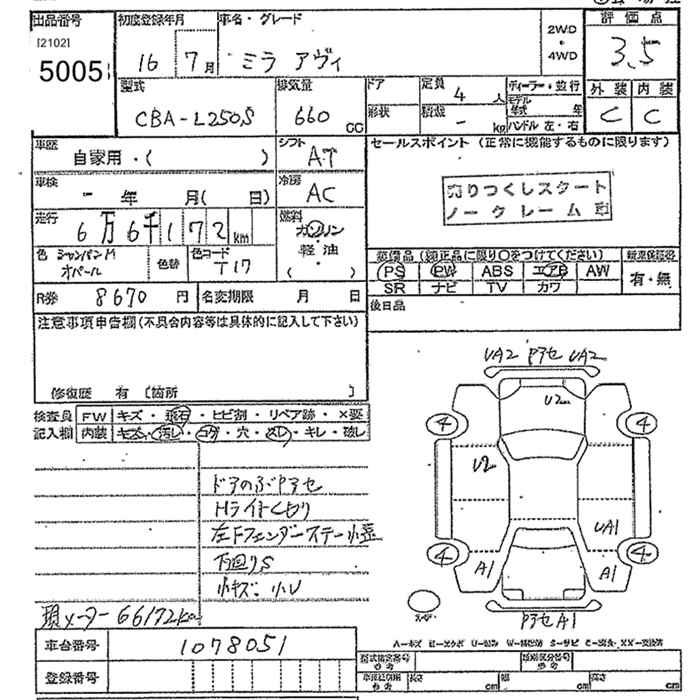 出品番号
[2102]
5005
初度登録年月
16 7月
車名・グレード
ミラ アヴィ
2WD
・
4WD
評価点
3.5
外装 内装
C C
型式
CBA-L250S
排気量
660
CC
ドア
形状
定員
4 人
積載
- kg
ディーラー・並行
モデル年式 年
ハンドル 左・右
車歴
自家用・( )
シフト
AT
セールスポイント (正常に機能するものに限ります)
売りつくしスタート
ノークレーム
車検
- 年 月( 日)
冷房
AC
走行
6万6千172km
燃料
ガソリン
・
軽油
( ・ )
色 シャンパンM
オパール
色替
色コード
T17
装備品(純正品に限り○をつけてください)
PS PW ABS エアB AW
SR ナビ TV カワ
新車保証書
有・無
R券 8670円
名変期限 月 日
後日品
注意事項申告欄(不具合内容等は具体的に記入して下さい)
修復歴 有 〔箇所 〕
検査員
記入欄
FW キズ・飛石・ヒビ割・リペア跡・×要
内装 キズ・汚レ・コゲ・穴・スレ・キレ・破レ
ドアのぶPアセ
Hライトくもり
左Fフェンダーステー小歪
下回りS
小キズ. 小U
現メーター66172km
車台番号 1078051
登録番号
UA2 Pアセ UA2
U2
4 4
U2
UA1
4 4
A1 A1
Pアセ A1
型式指定番号
類別区分番号
長さ cm 幅 cm 高さ cm